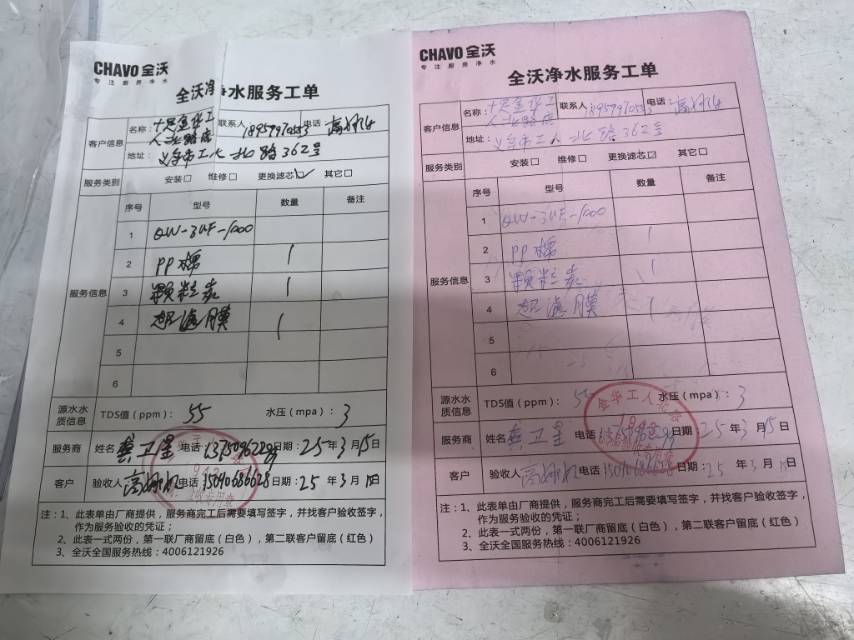 CHAVO 全沃
专注厨房净水
全沃净水服务工单
客户信息
名称:
联系人
电话:
地址: 义乌市工人北路362号
服务类别 安装□ 维修□ 更换滤芯☑ 其它□
服务信息
序号 型号 数量 备注
1 QW-3UF-1000
2 PP棉 1
3 颗粒炭 1
4 超滤膜 1
5
6
源水水质信息 TDS值(ppm): 55 水压(mpa): 3
服务商 姓名 龚卫星 电话 日期: 25年3月15日
客户 验收人 电话 15090686628 日期: 25年3月15日
注:1、此表单由厂商提供,服务商完工后需要填写签字,并找客户验收签字,
作为服务验收的凭证;
2、此表一式两份,第一联厂商留底(白色),第二联客户留底(红色)
3、全沃全国服务热线:4006121926
CHAVO 全沃
专注厨房净水
全沃净水服务工单
客户信息
名称:
联系人
电话:
地址: 义乌市工人北路362号
服务类别 安装□ 维修□ 更换滤芯☑ 其它□
服务信息
序号 型号 数量 备注
1 QW-3UF-1000
2 PP棉 1
3 颗粒炭 1
4 超滤膜 1
5
6
源水水质信息 TDS值(ppm): 55 水压(mpa): 3
服务商 姓名 龚卫星 电话 日期: 25年3月15日
客户 验收人 电话 日期: 25年3月15日
注:1、此表单由厂商提供,服务商完工后需要填写签字,并找客户验收签字,
作为服务验收的凭证;
2、此表一式两份,第一联厂商留底(白色),第二联客户留底(红色)
3、全沃全国服务热线:4006121926